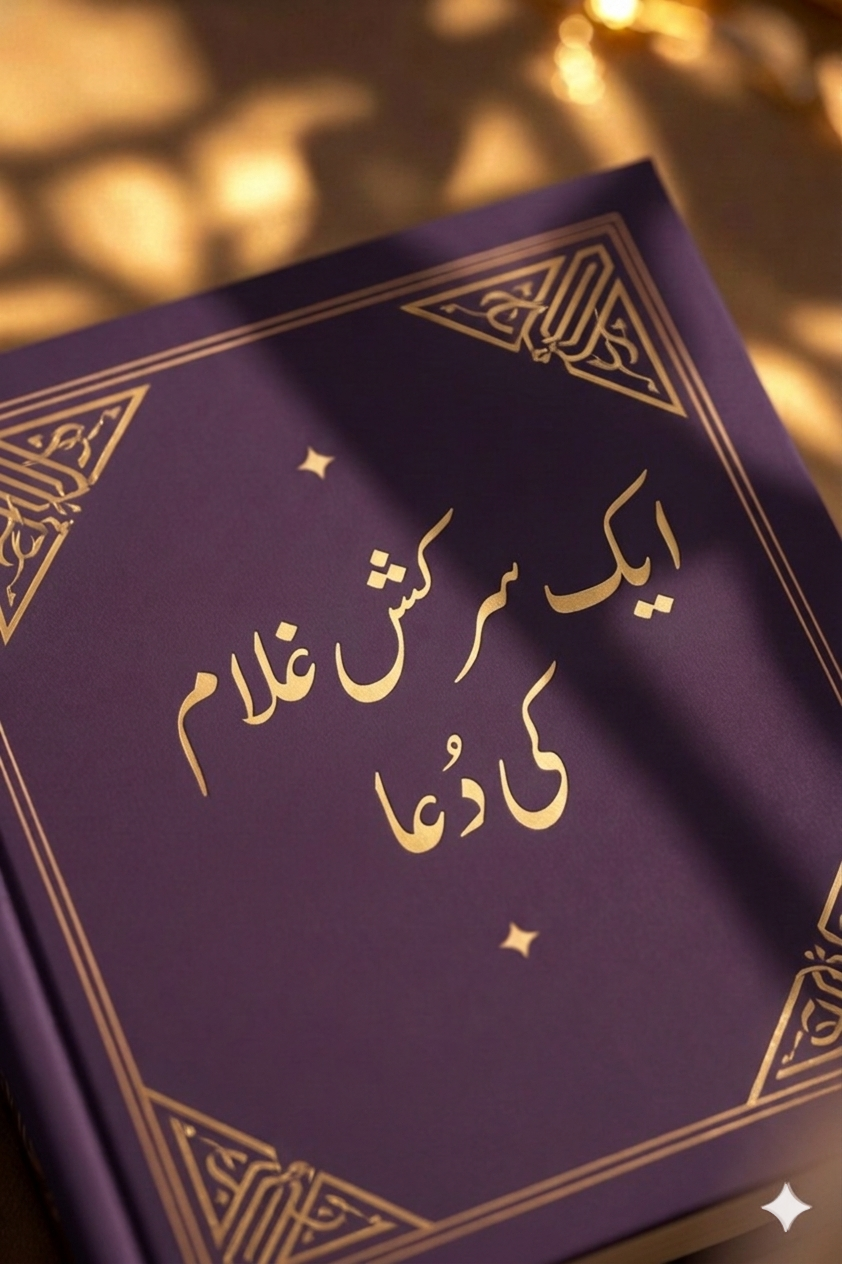 ایک سرکش غلام
کی دُعا